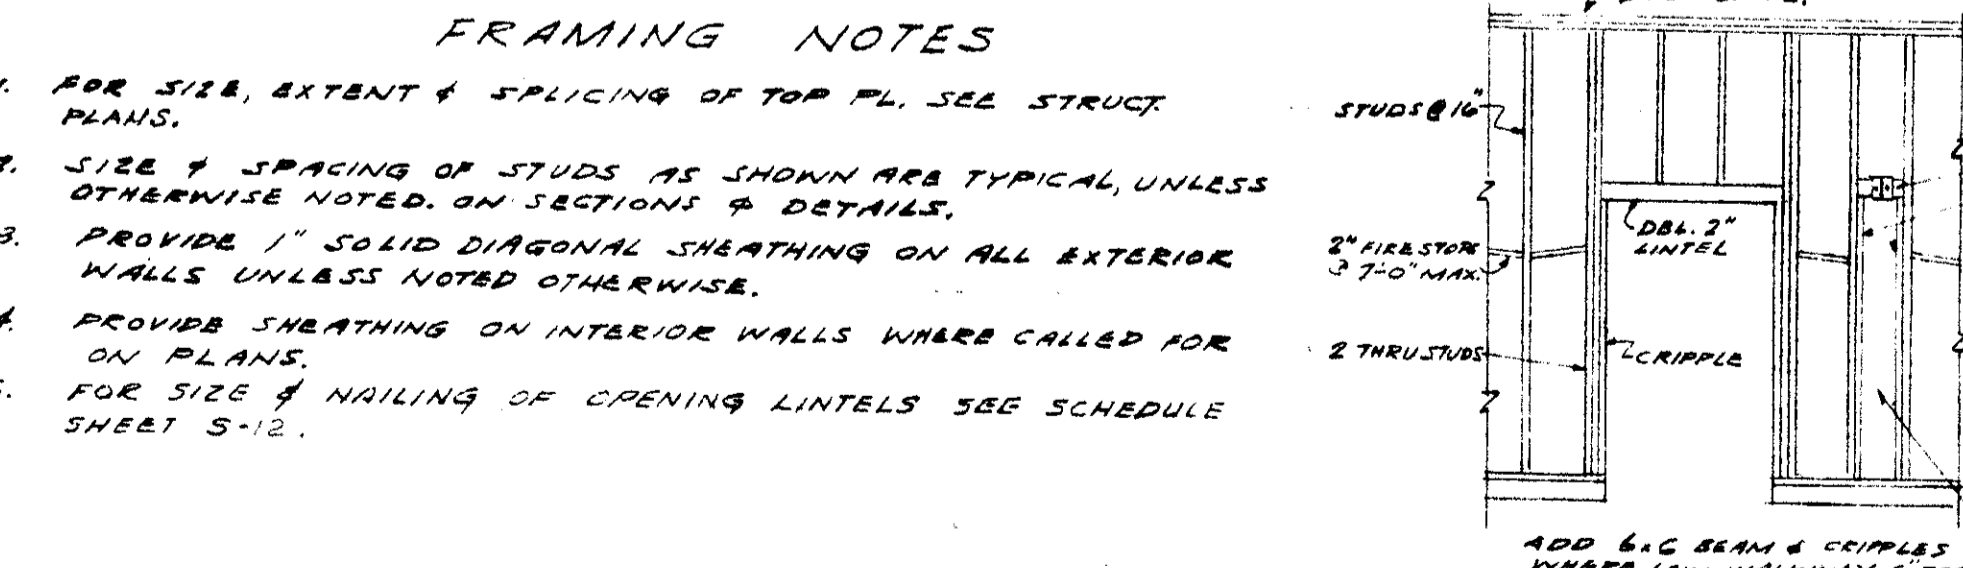 FRAMING NOTES
1. FOR SIZE, EXTENT & SPLICING OF TOP PL. SEE STRUCT.
PLANS.
2. SIZE & SPACING OF STUDS AS SHOWN ARE TYPICAL, UNLESS
OTHERWISE NOTED. ON SECTIONS & DETAILS.
3. PROVIDE 1" SOLID DIAGONAL SHEATHING ON ALL EXTERIOR
WALLS UNLESS NOTED OTHERWISE.
4. PROVIDE SHEATHING ON INTERIOR WALLS WHERE CALLED FOR
ON PLANS.
5. FOR SIZE & NAILING OF OPENING LINTELS SEE SCHEDULE
SHEET S-12.
STUDS @ 16"
DBL. 2"
LINTEL
2" FIRE STOPS
@ 7'-0" MAX.
2 THRU STUDS
CRIPPLE
ADD 6x6 BEAM & CRIPPLES
WHERE